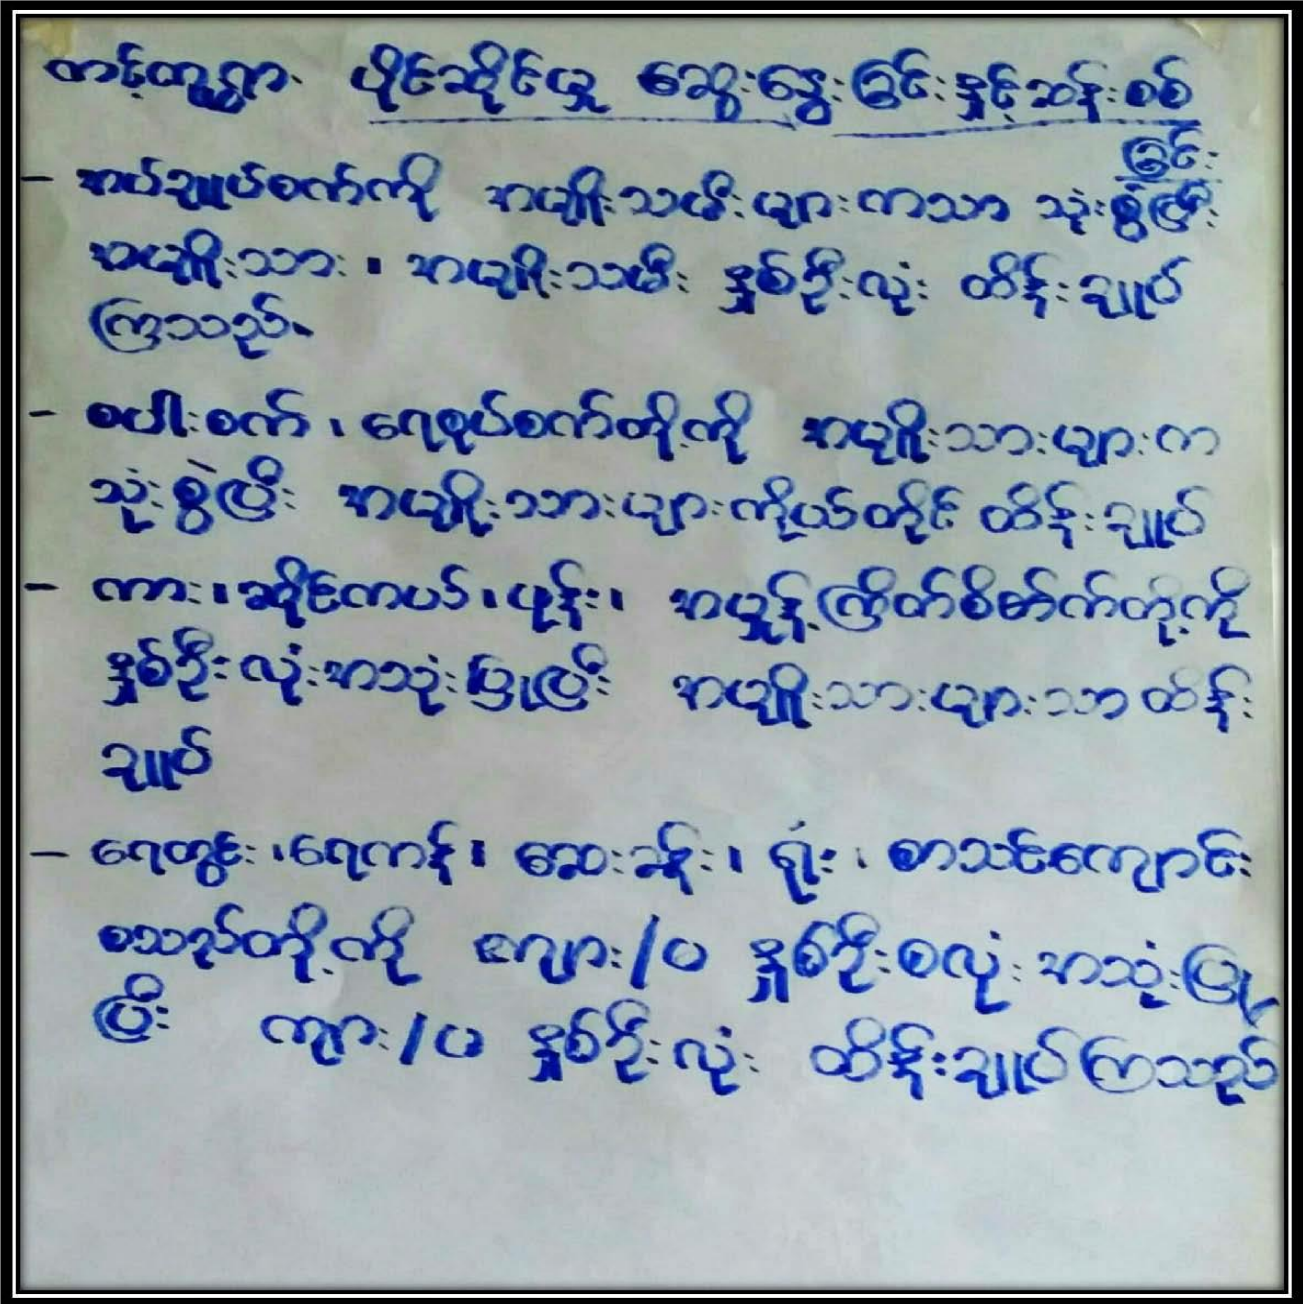 တင့်တူရွာ ပိုင်ဆိုင်မှု ဆွေးနွေးခြင်းနှင့်ဆန်းစစ်
ခြင်း
- အပ်ချုပ်စက်ကို အမျိုးသမီးများကသာ သုံးစွဲပြီး
အမျိုးသား၊ အမျိုးသမီး နှစ်ဦးလုံး ထိန်းချုပ်
ကြသည်။
- စပါးစက်၊ ရေစုပ်စက်တို့ကို အမျိုးသားများက
သုံးစွဲပြီး အမျိုးသားများကိုယ်တိုင် ထိန်းချုပ်
- ကား၊ ဆိုင်ကယ်၊ ဖုန်း၊ အမှုန့်ကြိတ်စက်တို့ကို
နှစ်ဦးလုံးအသုံးပြုပြီး အမျိုးသားများသာထိန်း
ချုပ်
- ရေတွင်း၊ ရေကန်၊ ဆေးခန်း၊ ရုံး၊ စာသင်ကျောင်း
စသည်တို့ကို ကျား/မ နှစ်ဦးစလုံး အသုံးပြု
ပြီး ကျား/မ နှစ်ဦးလုံး ထိန်းချုပ်ကြသည်